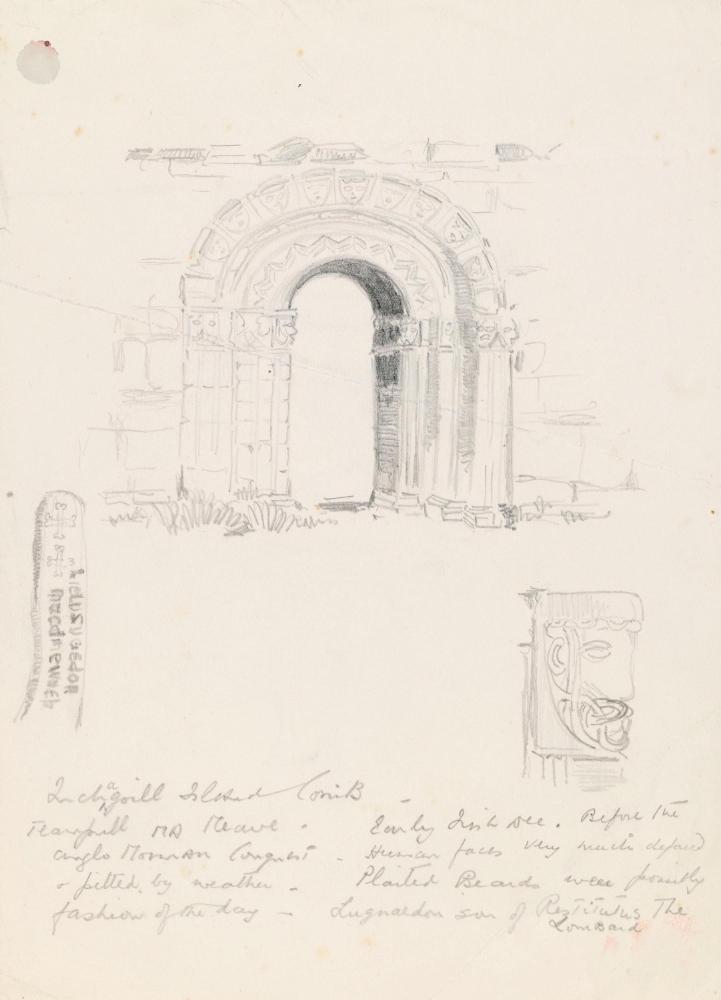 Inchagoill Island Corrib
Teampull na Neave. Early Irish Dec. Before the
Anglo Norman Conquest - Human faces very much defaced
& pitted by weather - Plaited Beards were possibly
fashion of the day - Lugnaedon son of Restitutus The
Lombard